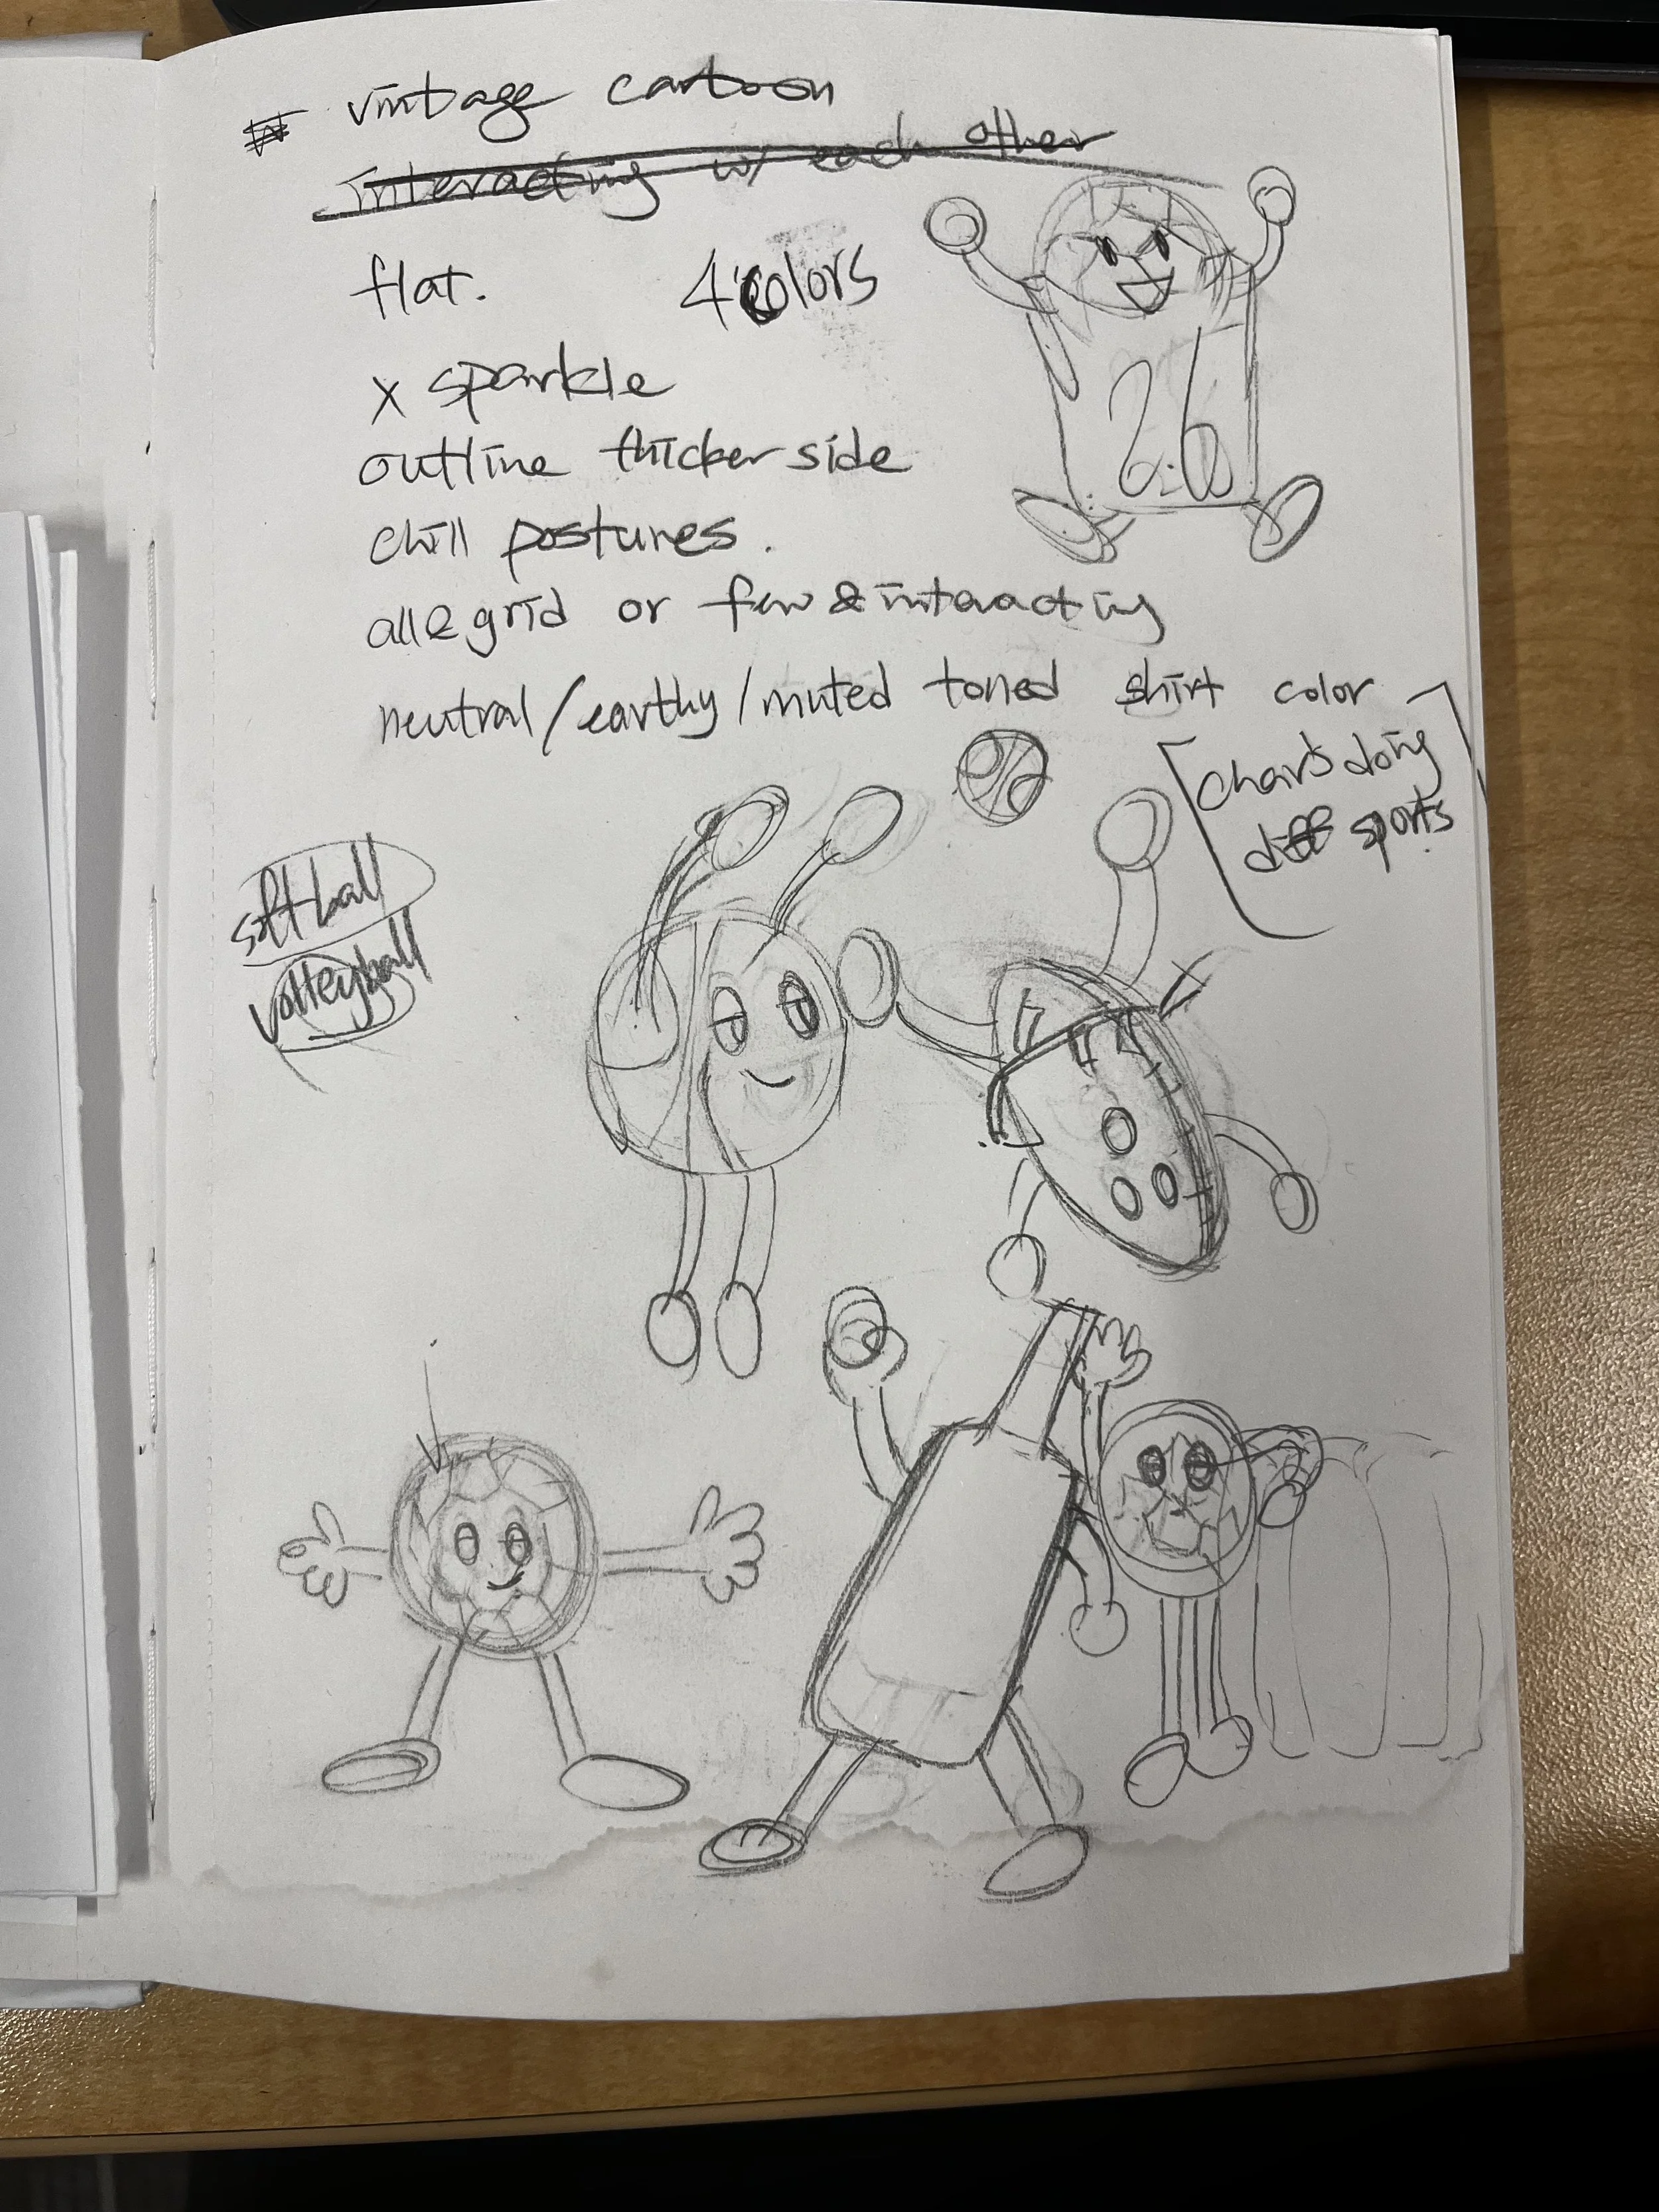 vintage cartoon
interacting w/ each other
flat. 4 colors
x sparkle
outline thicker side
chill postures.
all & grid or few & interacting
neutral/earthy/muted toned shirt color
doing
diff sports
softball
volleyball
26